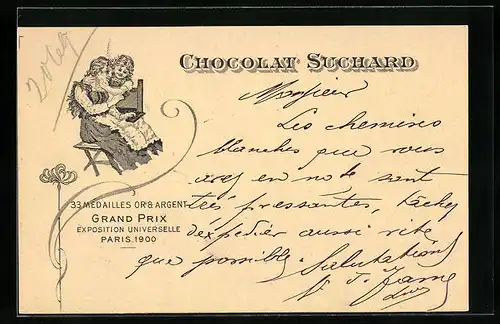 CHOCOLAT SUCHARD
33 MEDAILLES OR & ARGENT
GRAND PRIX
EXPOSITION UNIVERSELLE
PARIS. 1900
Monsieur
Les chemises
blanches que vous
avez en note sont
très pressantes, tachez
d'expédier aussi vite
que possible. Salutations